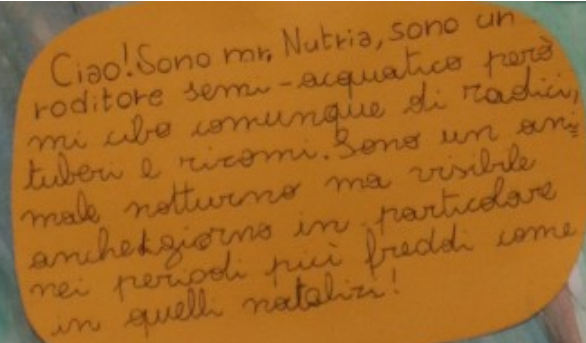 Ciao! Sono mr. Nutria, sono un
roditore semi-acquatico però
mi cibo comunque di radici,
tuberi e rizomi. Sono un ani=
male notturno ma visibile
anche giorno in particolare
nei periodi più freddi come
in quelli natalizi!